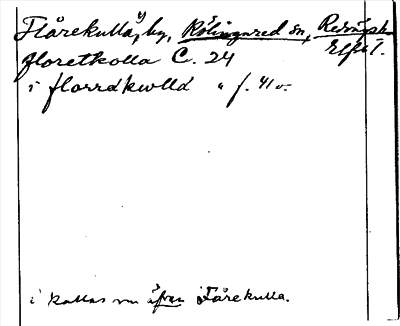 Flårekullaˣ⁾, by, Rölingared sn, Redvägs hd
Elfsb. l.
floretkolla C. 24
i florrækwlla " f. 41 v.
i kallas nu äfven Fårekulla.